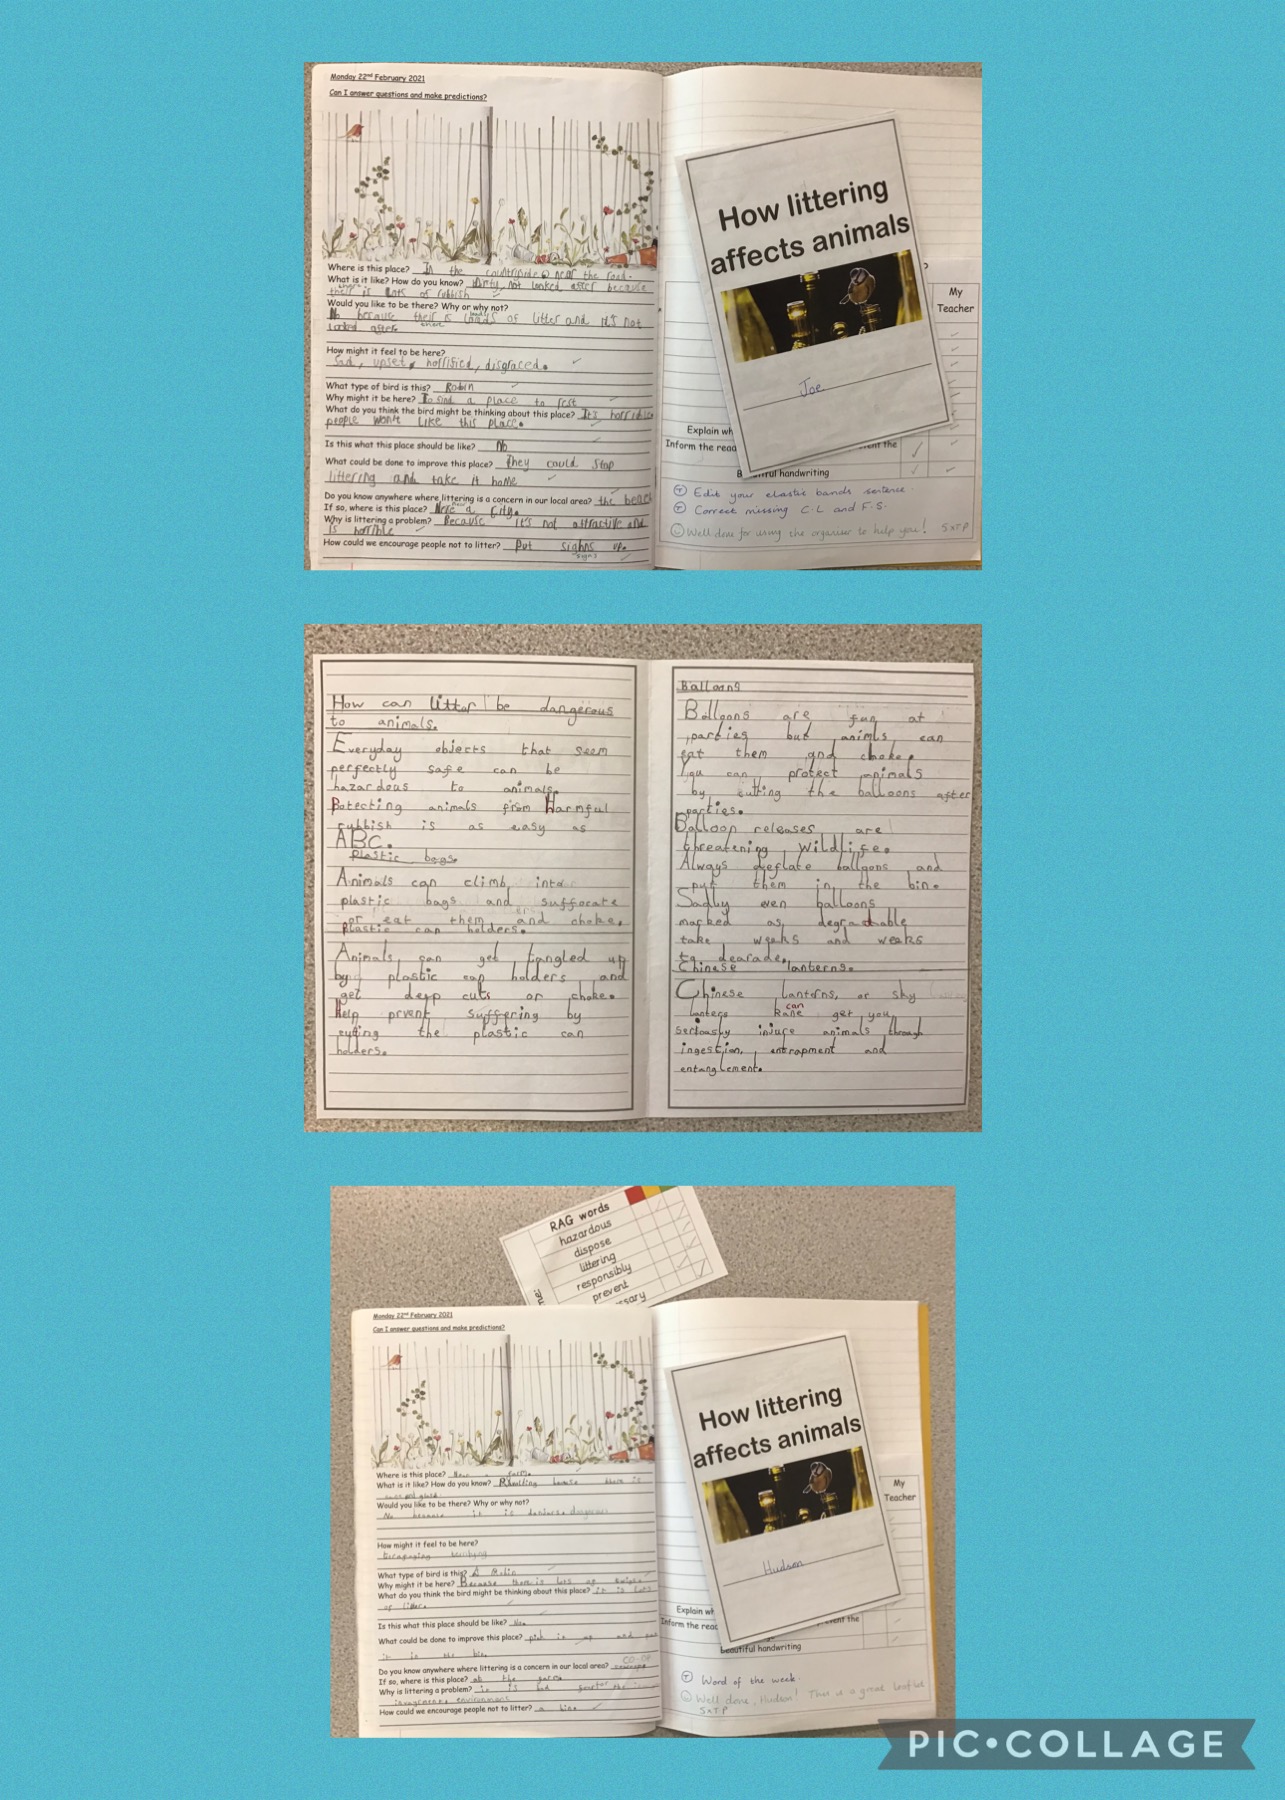 Monday 22nd February 2021
Can I answer questions and make predictions?
Where is this place? In the countryside near the road.
What is it like? How do you know? Dirty, not looked after because
their is lots of rubbish
Would you like to be there? Why or why not?
No because their is loads of litter and it's not
looked after.
How might it feel to be here?
Sad, upset, horrified, disgraced.
What type of bird is this? Robin
Why might it be here? To find a place to rest
What do you think the bird might be thinking about this place? It's horrible
people won't like this place.
Is this what this place should be like? No
What could be done to improve this place? They could stop
littering and take it home
Do you know anywhere where littering is a concern in our local area? the beach
If so, where is this place? Near a city.
Why is littering a problem? Because it's not attractive and
is horrible
How could we encourage people not to litter? Put sighns up.
signs
How littering
affects animals
Joe
?
My
Teacher
Explain wh
Inform the read
ent the
handwriting
T Edit your elastic bands sentence.
T Correct missing C.L and F.S.
Well done for using the organiser to help you! SxTP
How can litter be dangerous
to animals.
Everyday objects that seem
perfectly safe can be
hazardous to animals.
Potecting animals from Harmful
rubbish is as easy as
ABC.
Plastic bags.
Animals can climb into
plastic bags and suffocate
or eat them and choke.
Plastic can holders.
Animals can get tangled up
by plastic can holders and
get deep cuts or choke.
Help prvent suffering by
cutting the plastic can
holders.
Balloons
Balloons are fun at
parties but animls can
eat them and choke.
You can protect animals
by cutting the balloons after
parties.
Balloon releases are
threatening wildlife.
Always deflate balloons and
put them in the bin.
Sadly even balloons
marked as degradable
take weeks and weeks
to dearade.
Chinese lanterns.
Chinese lanterns, or sky
lanters can get you
seriously injure animals through
ingestion, entrapment and
entanglement.
RAG words
hazardous
dispose
littering
responsibly
prevent
ssary
me:
Monday 22nd February 2021
Can I answer questions and make predictions?
Where is this place? Near a farm.
What is it like? How do you know? because there is
Would you like to be there? Why or why not?
No because it is dangerous
How might it feel to be here?
What type of bird is this? A Robin
Why might it be here? Because there is lots of
What do you think the bird might be thinking about this place? it is lots
of litter.
Is this what this place should be like? No.
What could be done to improve this place? pick it up and put
it in the bin.
Do you know anywhere where littering is a concern in our local area? CO-OP
If so, where is this place? at the
Why is littering a problem? it is bad for the
environment
How could we encourage people not to litter? a bin
How littering
affects animals
Hudson
My
Teacher
Explain wh
Inform the reac
ent the
beautiful handwriting
T Word of the week.
Well done, Hudson! This is a great leaflet
SxTP
PIC•COLLAGE